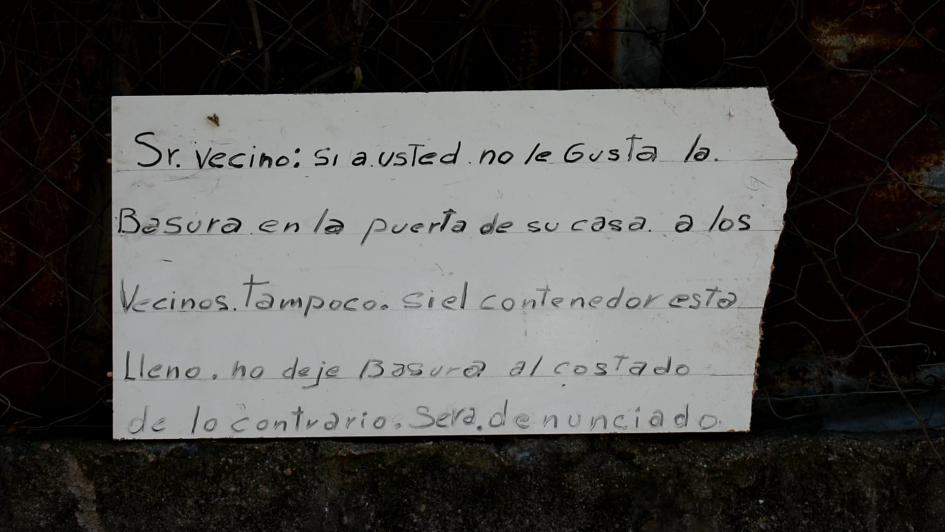 Sr. vecino: si a.usted.no le Gusta la.
Basura.en la puerta de su casa. a los
Vecinos.Tampoco. si el contenedor esta
Lleno. no deje Basura al costado
de lo contrario. Sera.denunciado.